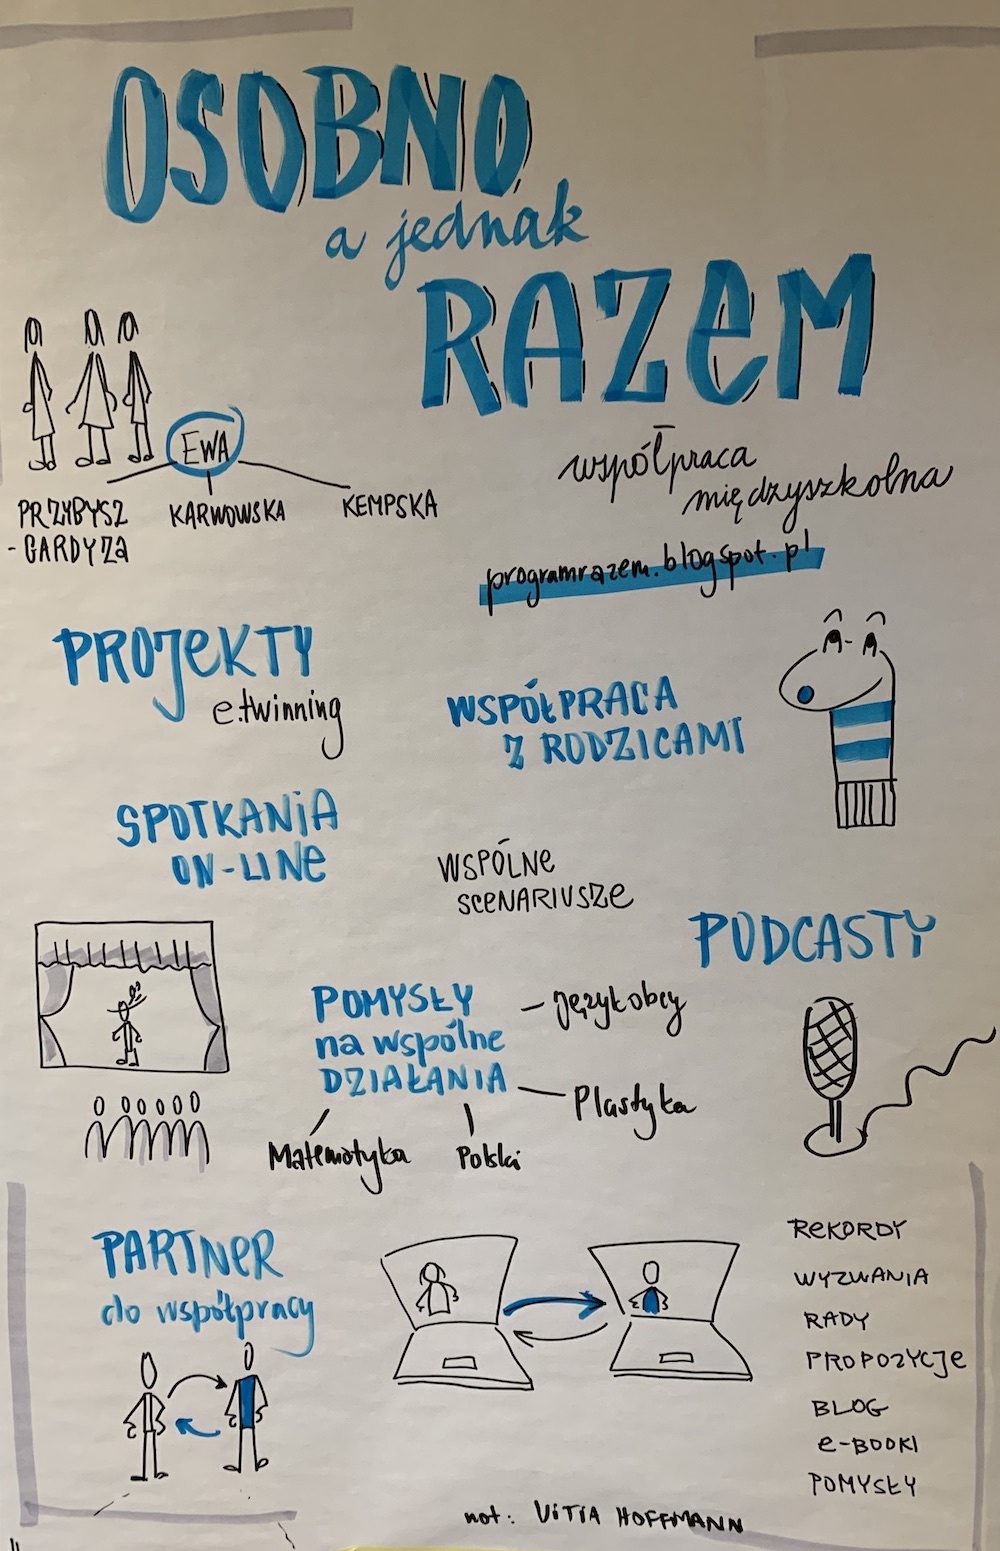 OSOBNO
a jednak
RAZEM
współpraca
międzyszkolna
programrazem.blogspot.pl
EWA
PRZYBYSZ
- GARDYZA
KARWOWSKA
KEMPSKA
PROJEKTY
e.twinning
WSPÓŁPRACA
Z RODZICAMI
SPOTKANIA
ON-LINE
WSPÓLNE
SCENARIUSZE
PODCASTY
POMYSŁY
na wspólne
DZIAŁANIA
- Język obcy
- Plastyka
Matematyka
Polski
PARTNER
do współpracy
REKORDY
WYZWANIA
RADY
PROPOZYCJE
BLOG
e-BOOKI
POMYSŁY
not: VITIA HOFFMANN